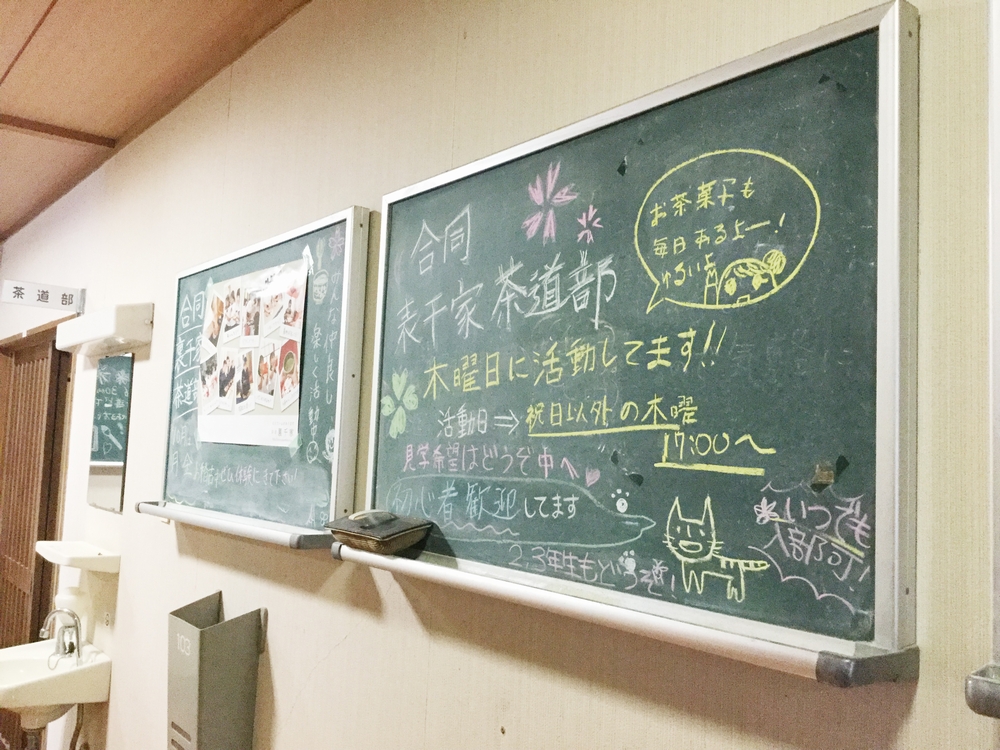 茶道部
合同
表千家
茶道
みんな仲良し
楽しく活動
合同
表千家 茶道部
お茶菓子も
毎日あるよー!
ゆるいよ
木曜日に活動してます!!
活動日⇒祝日以外の木曜
17:00〜
見学希望はどうぞ中へ
初心者歓迎してます
2,3年生もどうぞ!
いつでも
入部可!
103